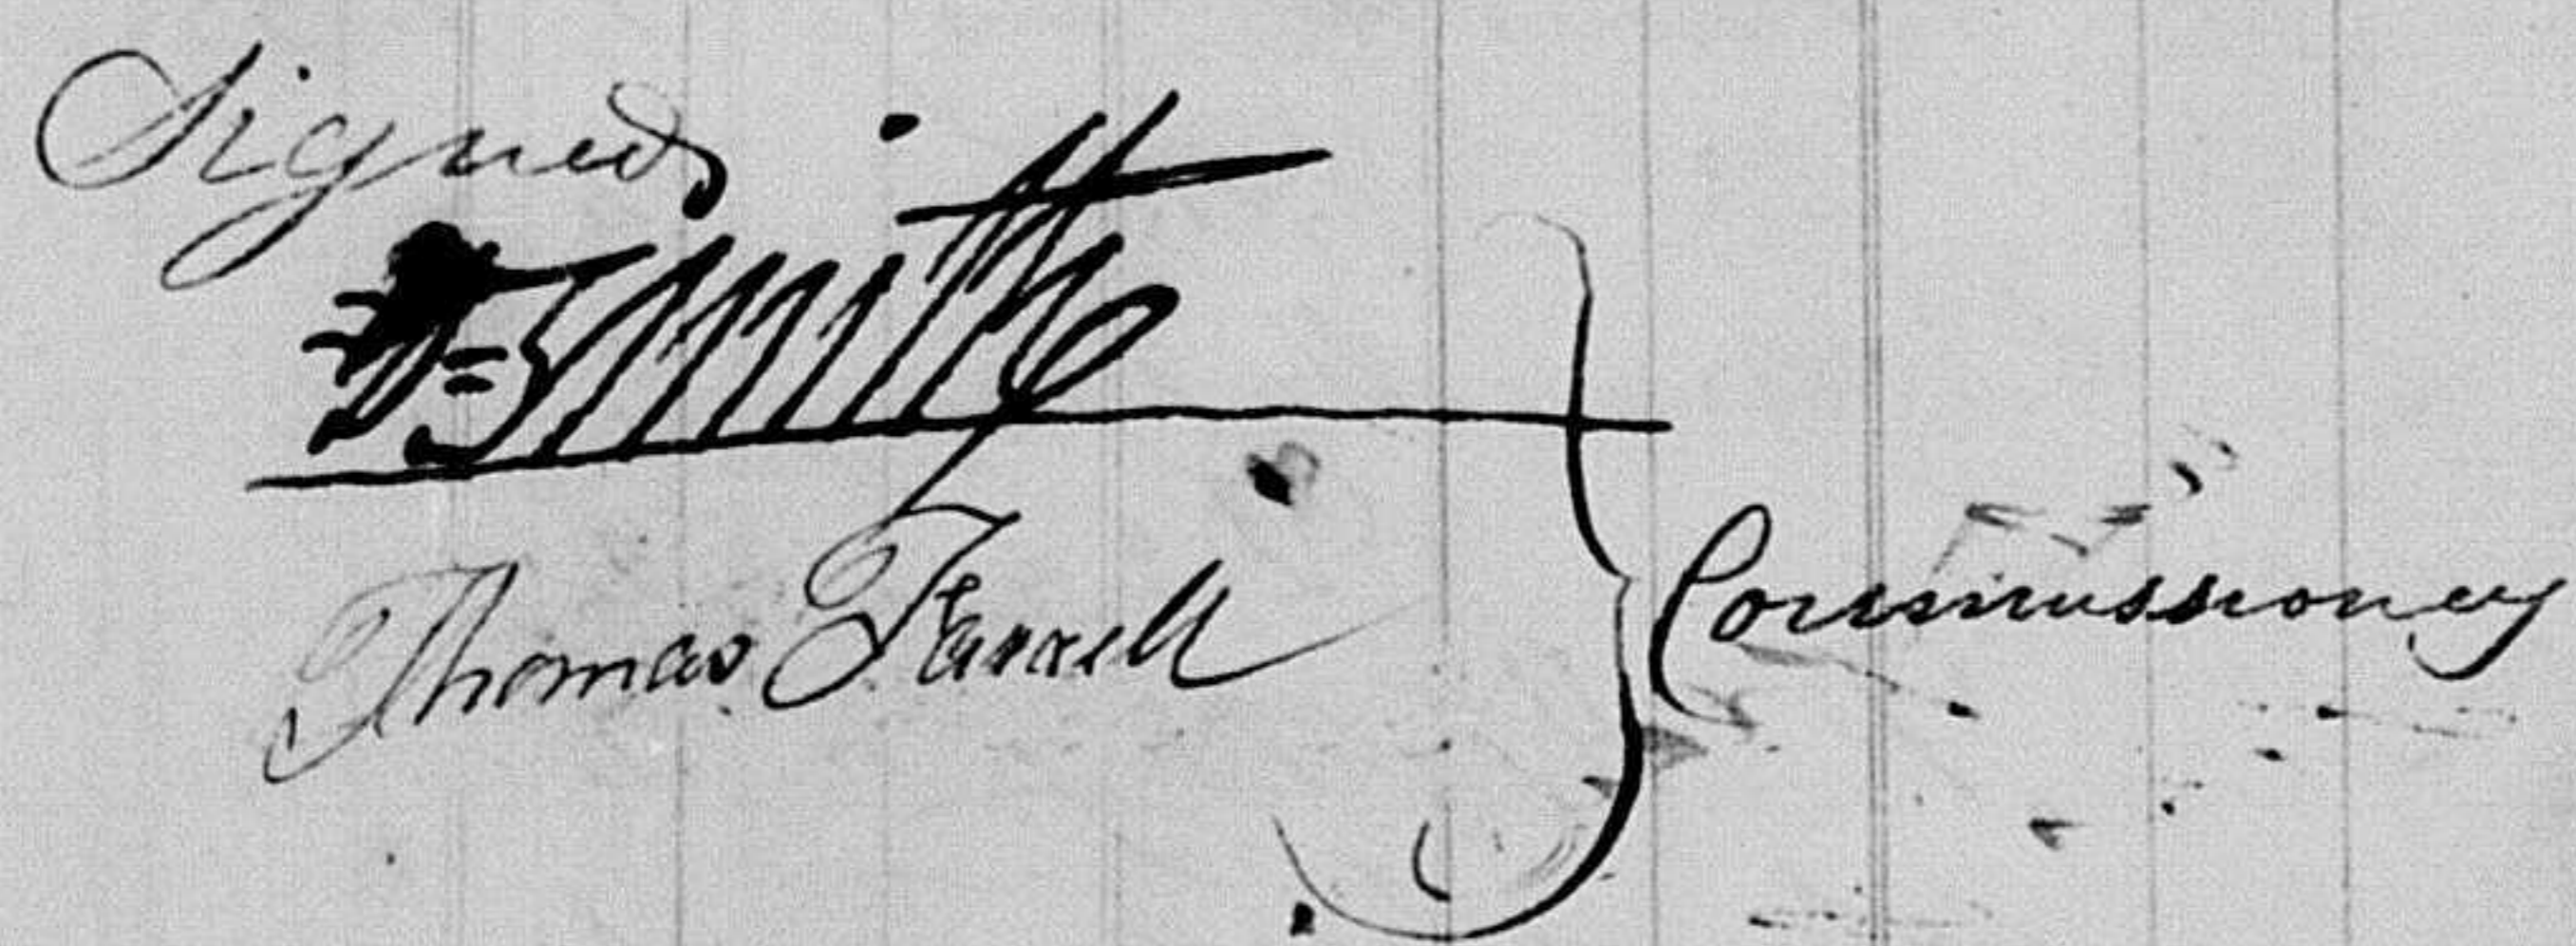 Signed
Smith
Thomas Farrell
Commissioners